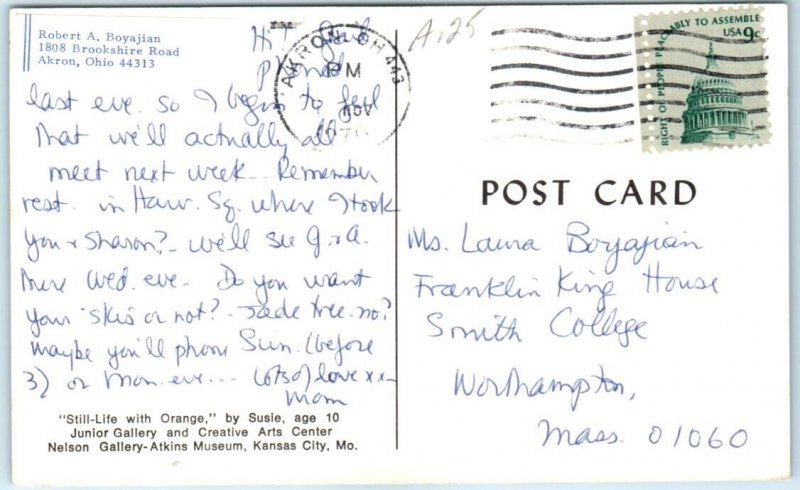 Robert A. Boyajian
1808 Brookshire Road
Akron, Ohio 44313
Hi
phoned
last eve. so I begin to feel
that we'll actually all
meet next week. Remember
rest. in Harv. Sq. where I took
you + Sharon? - we'll see G. + A.
there Wed. eve. - Do you want
your skis or not? - Jade tree - no?
maybe you'll phone Sun. (before
3) or Mon. eve... Lots o) love xx-
Mom
"Still-Life with Orange," by Susie, age 10
Junior Gallery and Creative Arts Center
Nelson Gallery-Atkins Museum, Kansas City, Mo.
A125
AKRON, OH 443
PM
NOV
RIGHT OF PEOPLE PEACEABLY TO ASSEMBLE
USA 9c
POST CARD
Ms. Laura Boyajian
Franklin King House
Smith College
Northampton,
Mass. 01060